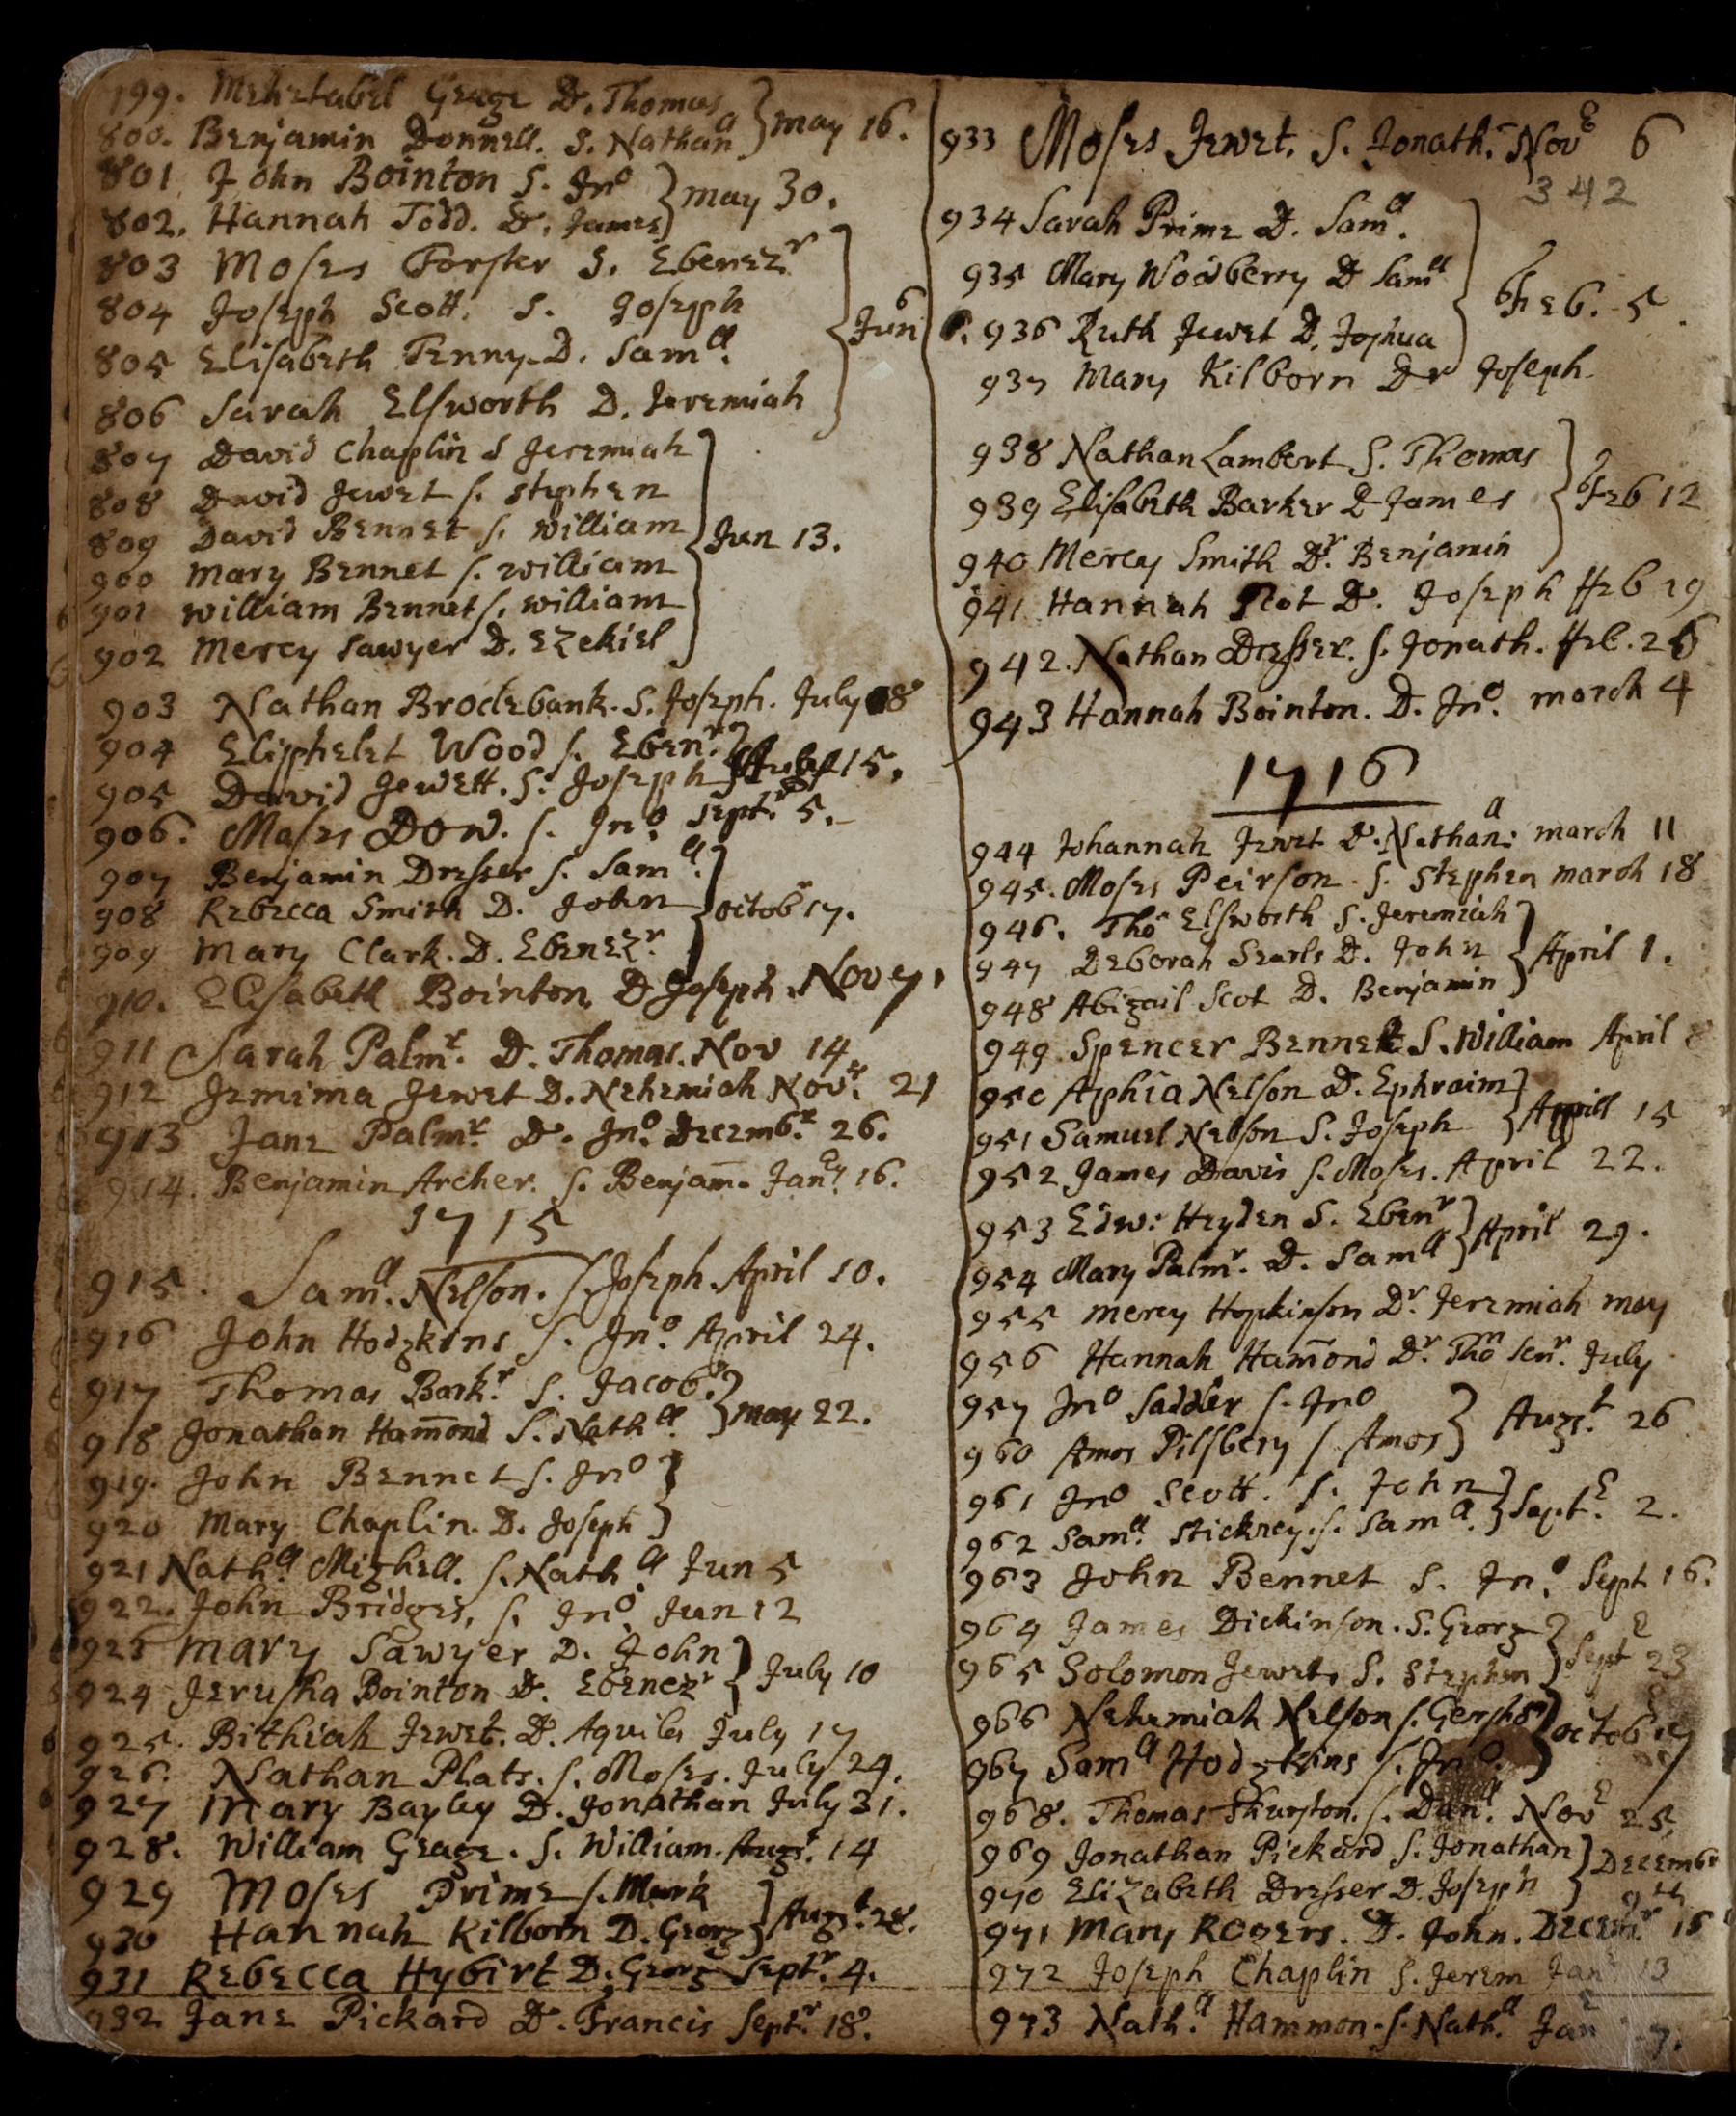 799. Mehetabel Geage D. Thomas
800. Benjamin Donnell. S. Nathanll } may 16.
801 John Bointon S. Jno
802. Hannah Todd. D. James } may 30.
803 Moses Forster S. Ebenezr
804 Joseph Scott. S. Joseph
805 Elisabeth Tenny. D. Samll. } Jun 6
806 Sarah Elsworth D. Jeremiah
807 David Chaplin S Jeremiah
808 David Jewet s. stephen
809 David Bennet s. william } Jun 13.
900 Mary Bennet s. william
901 william Bennet s. william
902 Mercy Sawyer D. Ezekiel
903 Nathan Brocklebank. S. Joseph. July 18
904 Eliphelet Wood s. Ebenr.
905 David Jewett. S. Joseph } 15.
906. Moses Dow. s. Jno. Septr. 5.
907 Benjamin Dresser s. Samll.
908 Rebecca Smith D. John } octobr 17.
909 Mary Clark. D. Ebenezr.
910. Elisabeth Bointon D Joseph. Nov 7.
911 Sarah Palmr. D. Thomas. Nov 14.
912 Jemima Jewet D. Nehemiah Novr. 21
913 Jane Palmr. D. Jno. Decembr. 26.
914. Benjamin Archer. s. Benjam. Jany. 16.
1715
915. Samll. Nelson. s. Joseph. April 10.
916 John Hodgkins s. Jno. April 24.
917 Thomas Barkr. S. Jacob.
918 Jonathan Hamond S. Nathll. } may 22.
919. John Bennet s. Jno }
920 Mary Chaplin. D. Joseph }
921 Nathll. Mighell. s. Nathll Jun 5
922. John Bridges, s. Jno. Jun 12
923 Mary Sawyer D. John
924 Jerusha Bointon D. Ebenezr } July 10
925. Bithiah Jewet. D. Aquila July 17
926. Nathan Plats. s. Moses. July 24.
927 Mary Bayley D. Jonathan July 31.
928. William Geage. s. William. Augt. 14
929 Moses Prime s. Mark
930 Hannah Kilborn D. Georg } Augt. 28.
931 Rebecca Hybirt D. Georg Septr. 4.
932 Jane Pickard D. Francis Septr. 18.
933 Moses Jewet. S. Jonath. Nov 6
342
934 Sarah Prime D. Samll.
935 Mary Woodberry D Samll } Feb. 5.
936 Ruth Jewet D. Joshua
937 Mary Kilborn Dr Joseph.
938 Nathan Lambert S. Thomas
939 Elisabeth Barker D James } Feb 12
940 Mercy Smith Dr. Benjamin
941 Hannah Plot D. Joseph Feb 19
942. Nathan Dresser. s. Jonath. Feb. 26
943 Hannah Bointon. D. Jno. march 4
1716
944 Johannah Jewet D. Nathanll: march 11
945. Moses Peirson. S. Stephen march 18
946. Tho Elsworth S. Jeremiah
947 Deborah Searls D. John } April 1.
948 Abigail Scot D. Benjamin
949. Spencer Bennett S. William April 8
950 Aphia Nelson D. Ephraim
951 Samuel Nelson S. Joseph } April 15
952 James Davis s. Moses. April 22.
953 Edw: Heyden S. Ebenr
954 Mary Palmr. D. Samll } April 29.
955 mercy Hopkinson Dr. Jeremiah may
956 Hannah Hamond Dr. Tho Senr. July
957 Jno Sadder s. Jno
960 Amos Pilsbery s. Amos } Augst. 26
961 Jno Scott. s. John
962 Samll. Stickney. s. Samll. } Sept. 2.
963 John Bennet S. Jno. Sept 16.
964 James Dickinson. S. Georg
965 Solomon Jewet. S. Stephen } Sept 23
966 Nehemiah Nelson s. Gersho
967 Samll Hodgkins s. Jno. } octob
968. Thomas Thurston. s. Danll. Nov 25
969 Jonathan Pickard S. Jonathan
970 Elizabeth Dresser D. Joseph } Decembr 9th
971 Mary Rogers. D. John. Decembr 16
972 Joseph Chaplin S. Jerem Jan 13
973 Nathll. Hammon. s. Nathll Jan